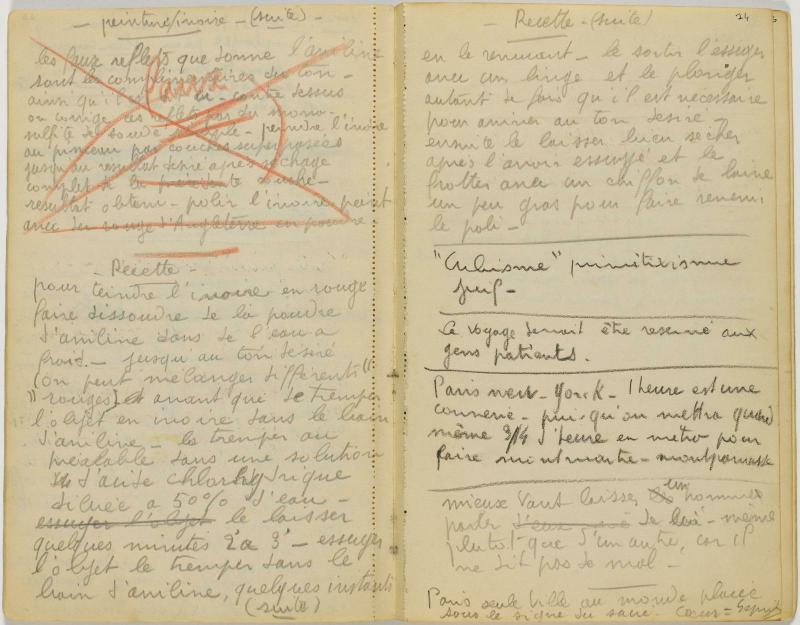 - peinture/ivoire - (suite)
les faux reflets que donne l'aniline
sont les complémentaires du ton -
ainsi qu'il est dit ci-contre dessus
on corrige ces reflets par du mono-
sulfite de soude - peindre l'ivoire
au pinceau par couches superposées
jusqu'au resultat desiré après sechage
complet de la precedente couche -
resultat obtenu - polir l'ivoire peint
avec du rouge d'Angleterre en poudre -
- Recette -
pour teindre l'ivoire en rouge
faire dissoudre de la poudre
d'aniline dans de l'eau a
froid. - jusqu'au ton desiré
(on peut mélanger différents
"rouges) et avant que de tremper
l'objet en ivoire dans le bain
d'aniline - le tremper au
préalable dans une solution
d'acide chlorhydrique
diluée a 50% d'eau -
essuyer l'objet le laisser
quelques minutes 2 a 3' - essuyer
l'objet le tremper dans le
bain d'aniline, quelques instants
(suite)
- Recette - (suite)
24
en le remuant - le sortir l'essuyer
avec un linge et le plonger
autant de fois qu'il est nécessaire
pour arriver au ton desiré -
ensuite le laisser bien sécher
après l'avoir essuyé et le
frotter avec un chiffon de laine
un peu gras pour faire revenir
le poli -
"Cubisme" primitivisme
juif -
Le voyage devrait être reservé aux
gens patients.
Paris new-Yorck - 1 heure est une
connerie - puisqu'on mettra quand
même 3/4 d'heure en métro pour
faire montmartre - montparnasse
mieux vaut laisser un homme
parler de lui - même
plutot que d'un autre, car il
ne dit pas de mal -
Paris seule ville au monde placée
sous le signe du sacré. Coeur - esprit